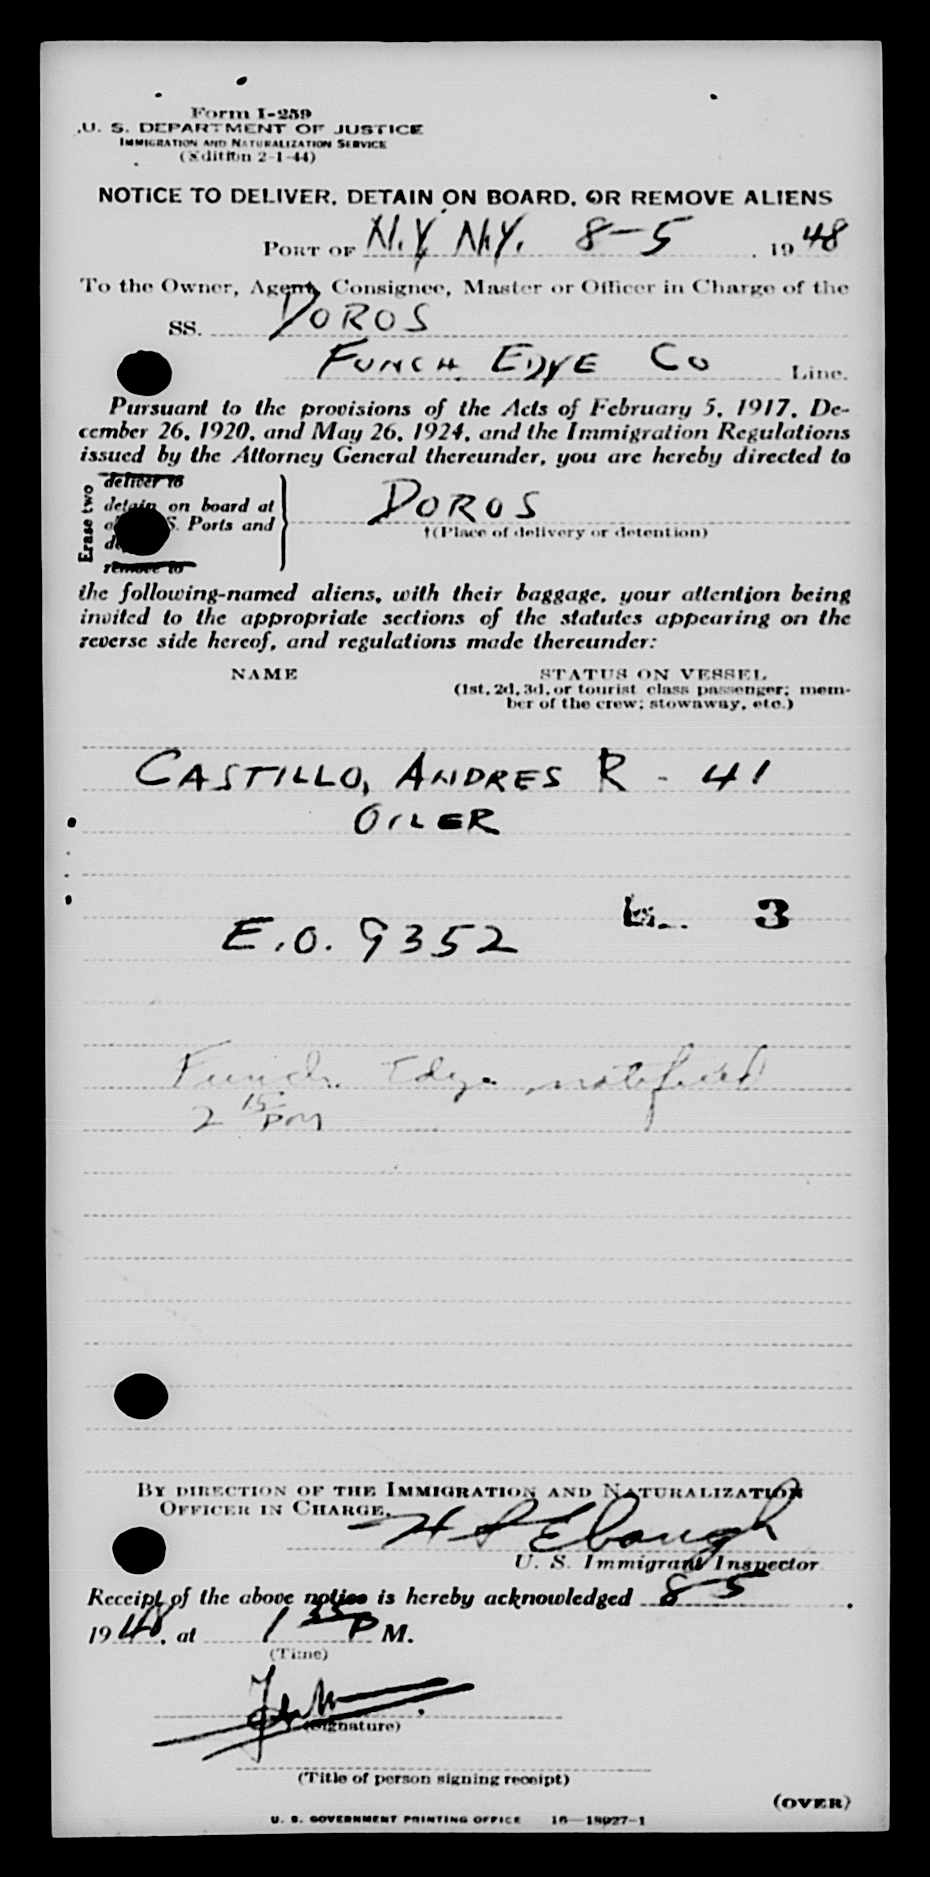 Form I-259
U. S. DEPARTMENT OF JUSTICE
IMMIGRATION AND NATURALIZATION SERVICE
(Edition 2-1-44)
NOTICE TO DELIVER, DETAIN ON BOARD, OR REMOVE ALIENS
PORT OF N.Y. N.Y. 8-5, 1948
To the Owner, Agent, Consignee, Master or Officer in Charge of the
SS. DOROS
FUNCH EDYE CO Line.
Pursuant to the provisions of the Acts of February 5, 1917, De-
cember 26, 1920, and May 26, 1924, and the Immigration Regulations
issued by the Attorney General thereunder, you are hereby directed to
Erase two
deliver to
detain on board at
S. Ports and
remove to
DOROS
†(Place of delivery or detention)
the following-named aliens, with their baggage, your attention being
invited to the appropriate sections of the statutes appearing on the
reverse side hereof, and regulations made thereunder:
NAME STATUS ON VESSEL
(1st, 2d, 3d, or tourist class passenger; mem-
ber of the crew; stowaway, etc.)
CASTILLO, ANDRES R - 41
OILER
3
E.O. 9352
Funch Edye notified
2 15 PM
BY DIRECTION OF THE IMMIGRATION AND NATURALIZATION
OFFICER IN CHARGE,
H S Ebaugh
U. S. Immigrant Inspector
Receipt of the above notice is hereby acknowledged 8-5,
1948, at 1 35 P M.
(Time)
(Signature)
(Title of person signing receipt)
(OVER)
U. S. GOVERNMENT PRINTING OFFICE 16—18027-1